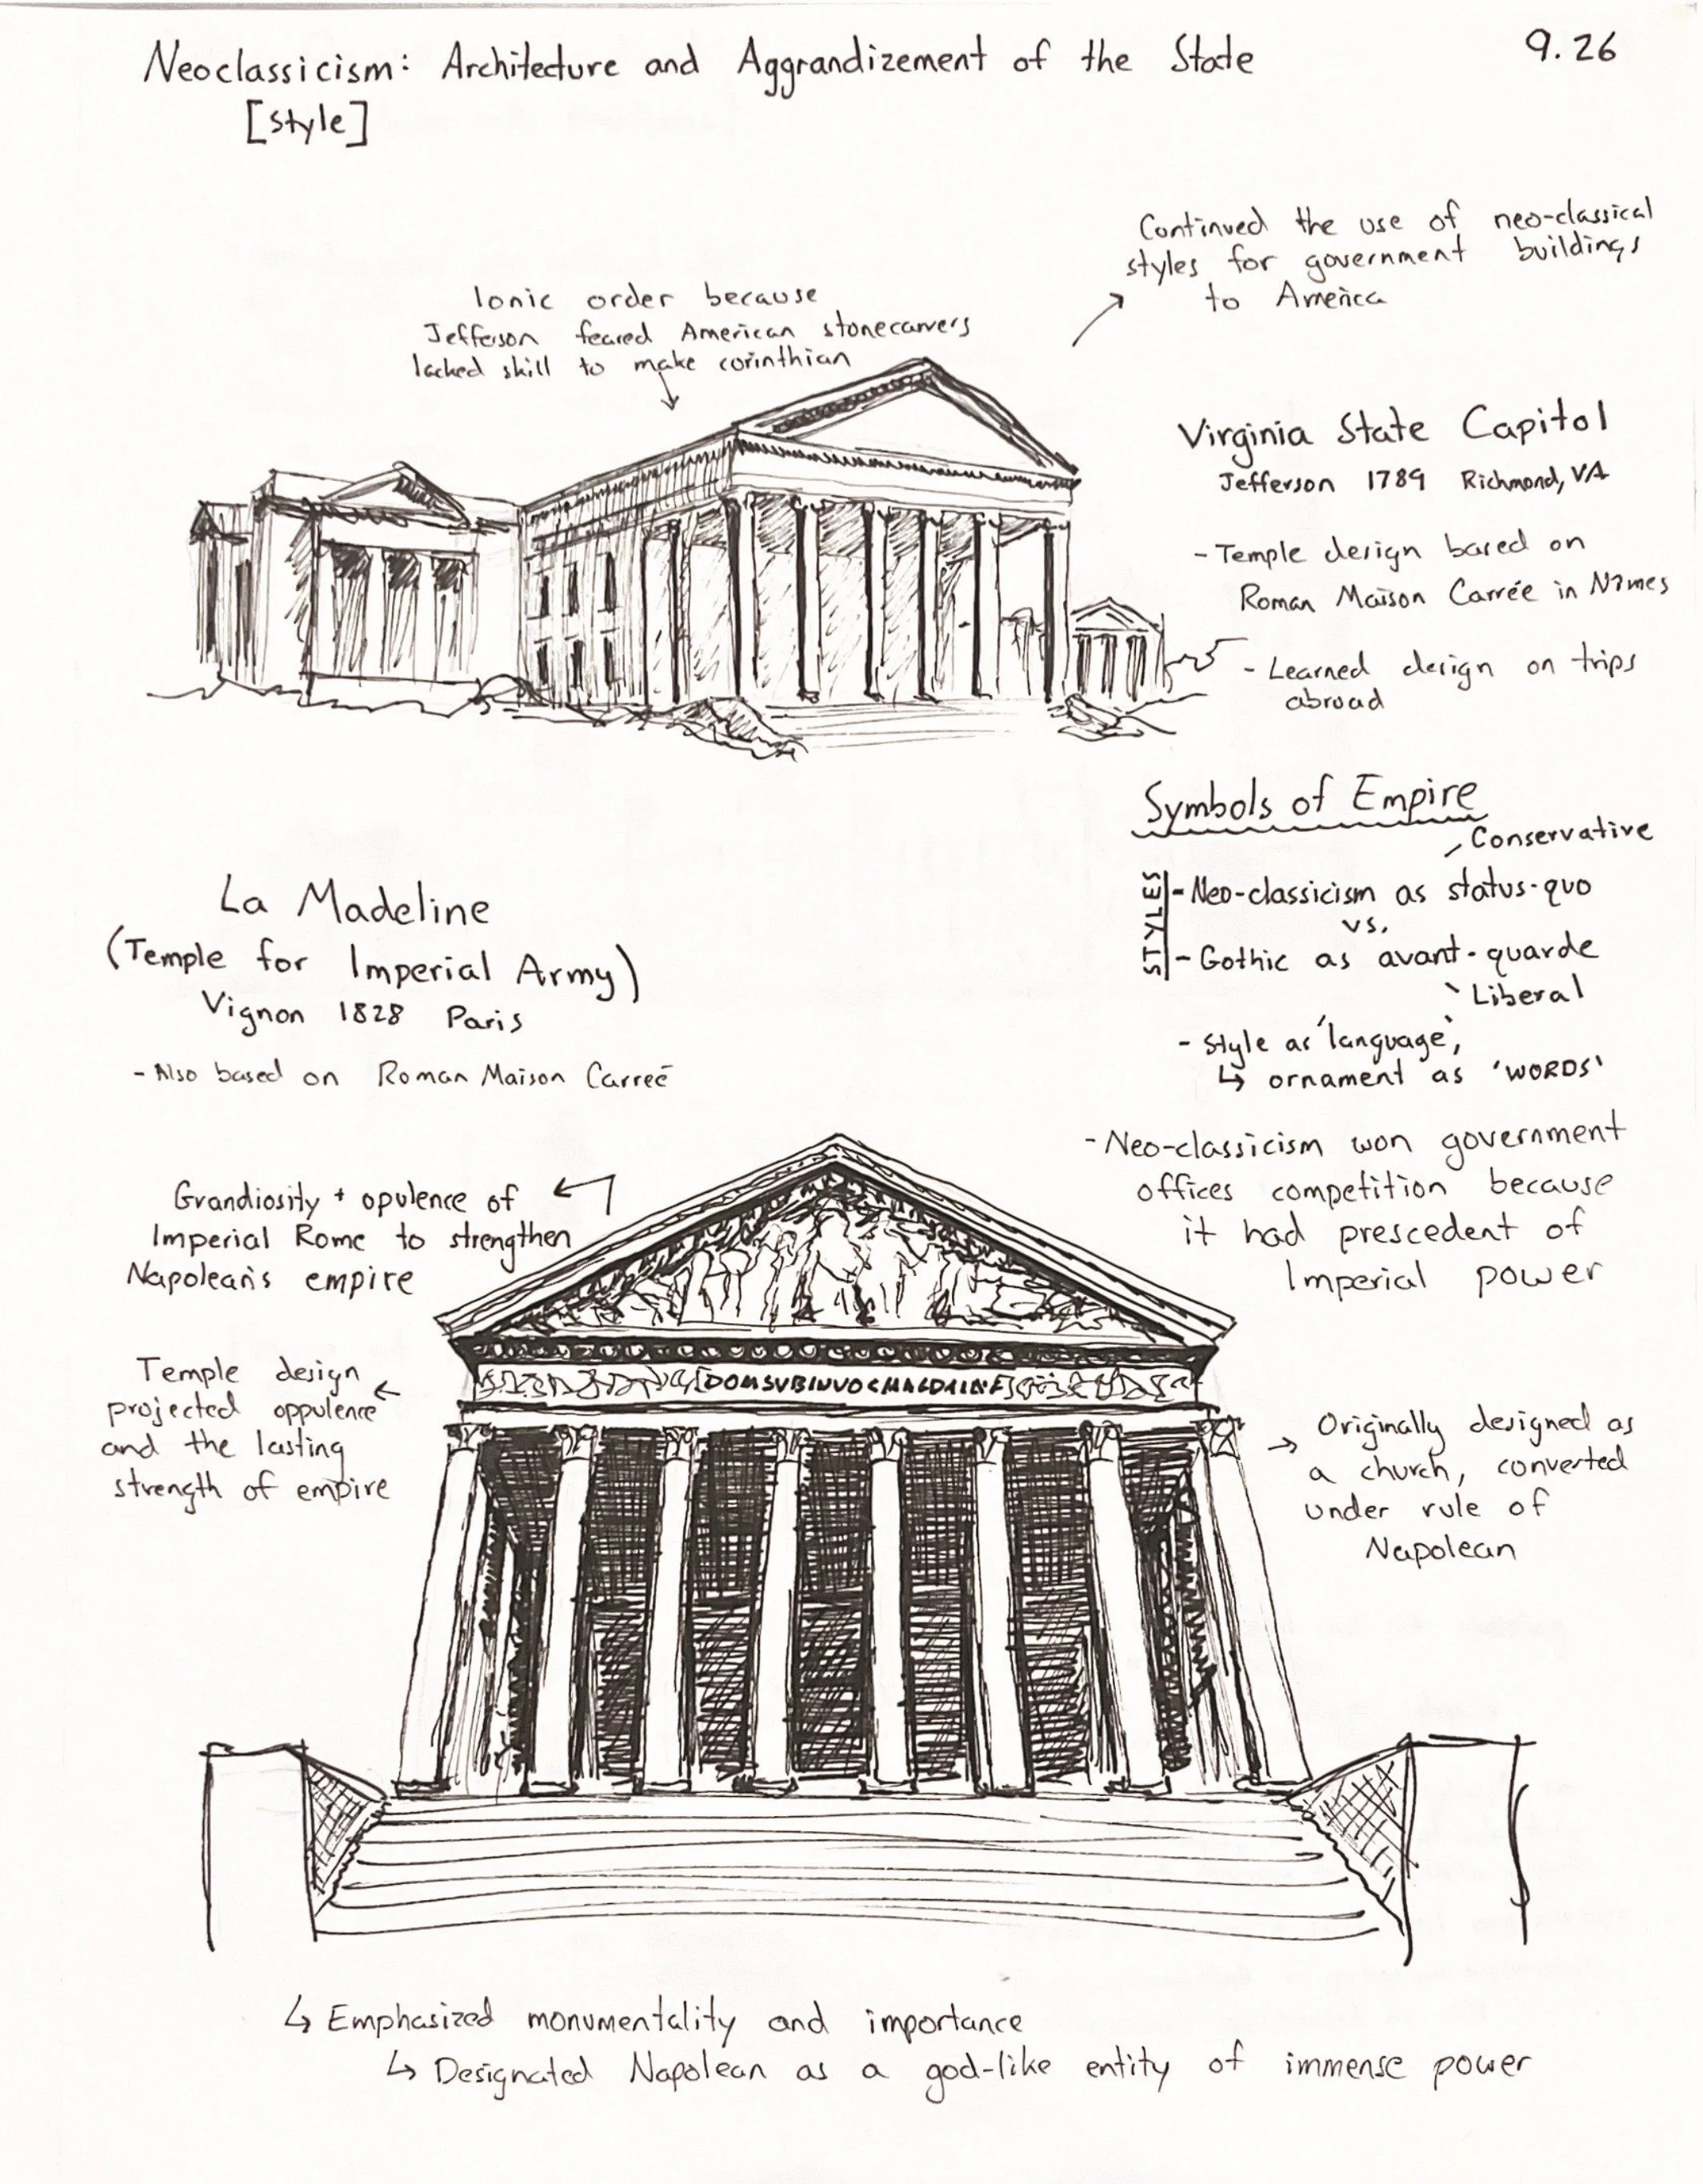 Neoclassicism: Architecture and Aggrandizement of the State
[style]
9.26
Continued the use of neo-classical
styles for government buildings
to America
Ionic order because
Jefferson feared American stonecarvers
lacked skill to make corinthian
Virginia State Capitol
Jefferson 1789 Richmond, VA
- Temple design based on
Roman Maison Carrée in Nîmes
- Learned design on trips
abroad
Symbols of Empire
Conservative
STYLES
- Neo-classicism as status-quo
vs.
- Gothic as avant-quarde
Liberal
- Style as 'language',
↳ ornament as 'WORDS'
- Neo-classicism won government
offices competition because
it had prescedent of
Imperial power
La Madeline
(Temple for Imperial Army)
Vignon 1828 Paris
- Also based on Roman Maison Carreé
Grandiosity + opulence of
Imperial Rome to strengthen
Napolean's empire
Temple design
projected oppulence
and the lasting
strength of empire
→ Originally designed as
a church, converted
under rule of
Napolean
↳ Emphasized monumentality and importance
↳ Designated Napolean as a god-like entity of immense power